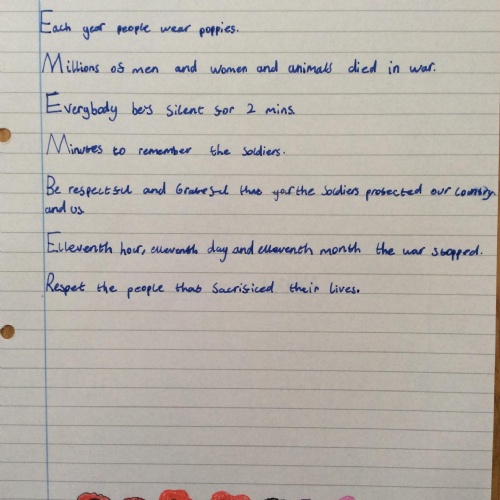 Each year people wear poppies.
Millions of men and women and animals died in war.
Everybody be's silent for 2 mins.
Minutes to remember the soldiers.
Be respectful and Grateful that the Soldiers protected our country
and us
Elleventh hour, elleventh day and elleventh month the war stopped.
Respet the people that Sacrificed their lives.